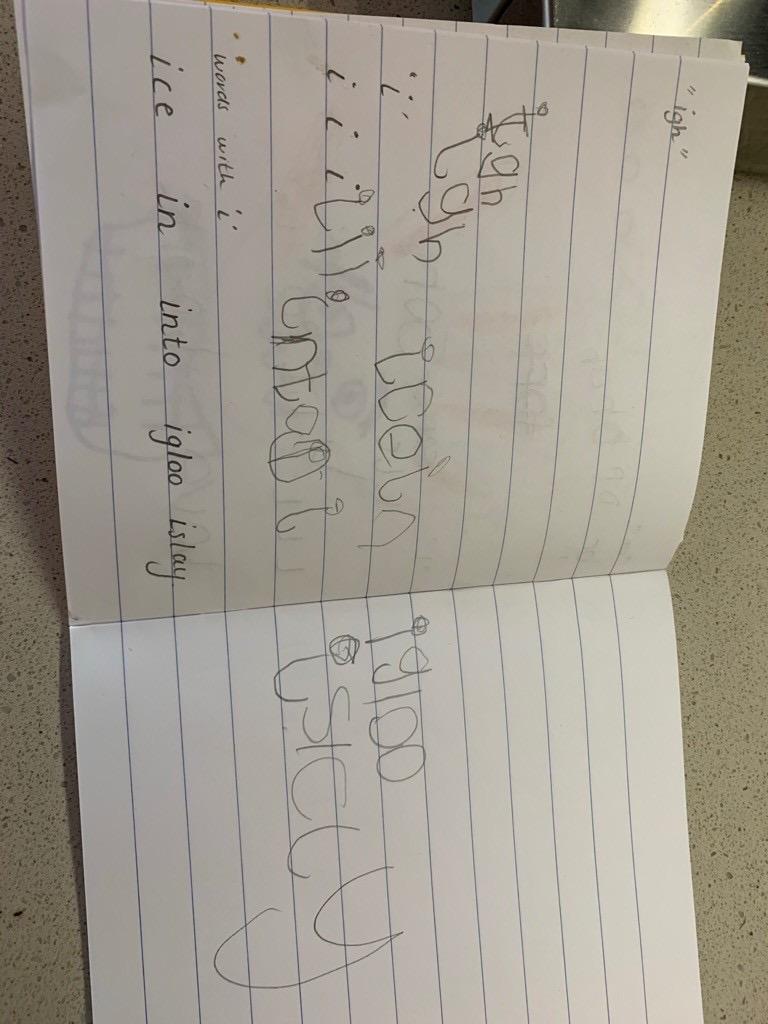 "igh"
igh
igh
"i"
ice in
i i i i i i i
into i
words with i
ice in into igloo islay
igloo
islay